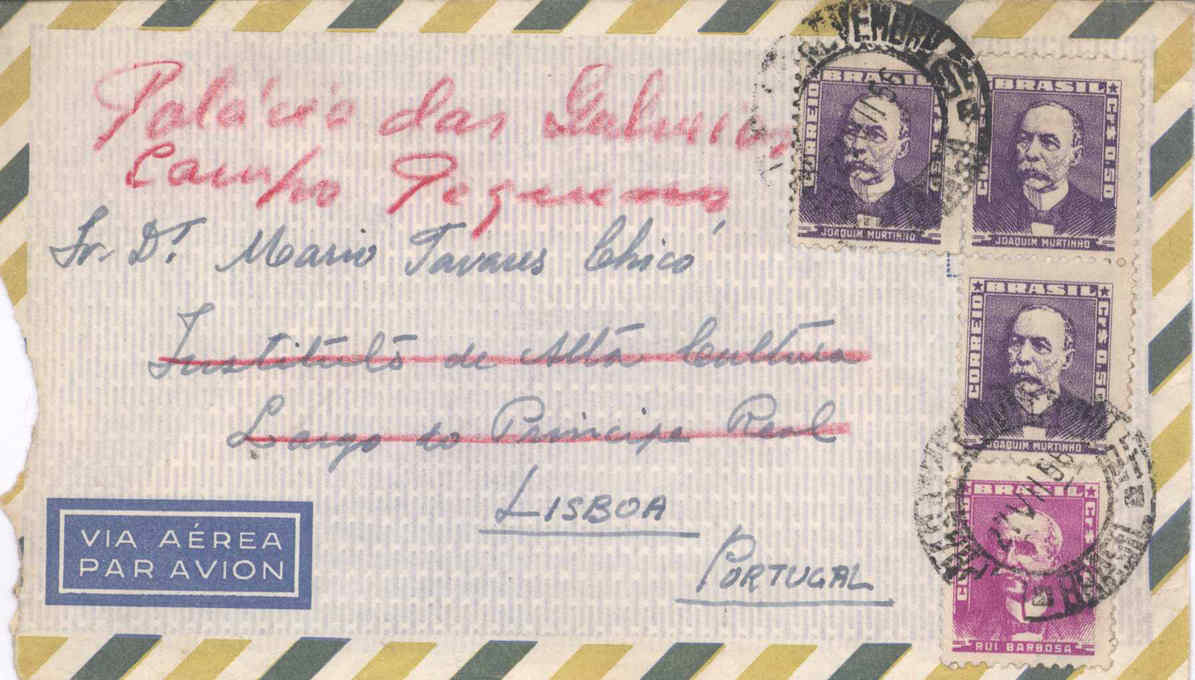 Palácio das Galveias
Campo Pequeno
Sr. Dr. Mario Tavares Chicó
Instituto de Alta Cultura
Largo do Principe Real
LISBOA
PORTUGAL
VIA AÉREA
PAR AVION
BRASIL
CORREIO
JOAQUIM MURTINHO
BRASIL
CR$ 0.50
JOAQUIM MURTINHO
BRASIL
CORREIO
CR$ 0.50
JOAQUIM MURTINHO
BRASIL
RUI BARBOSA